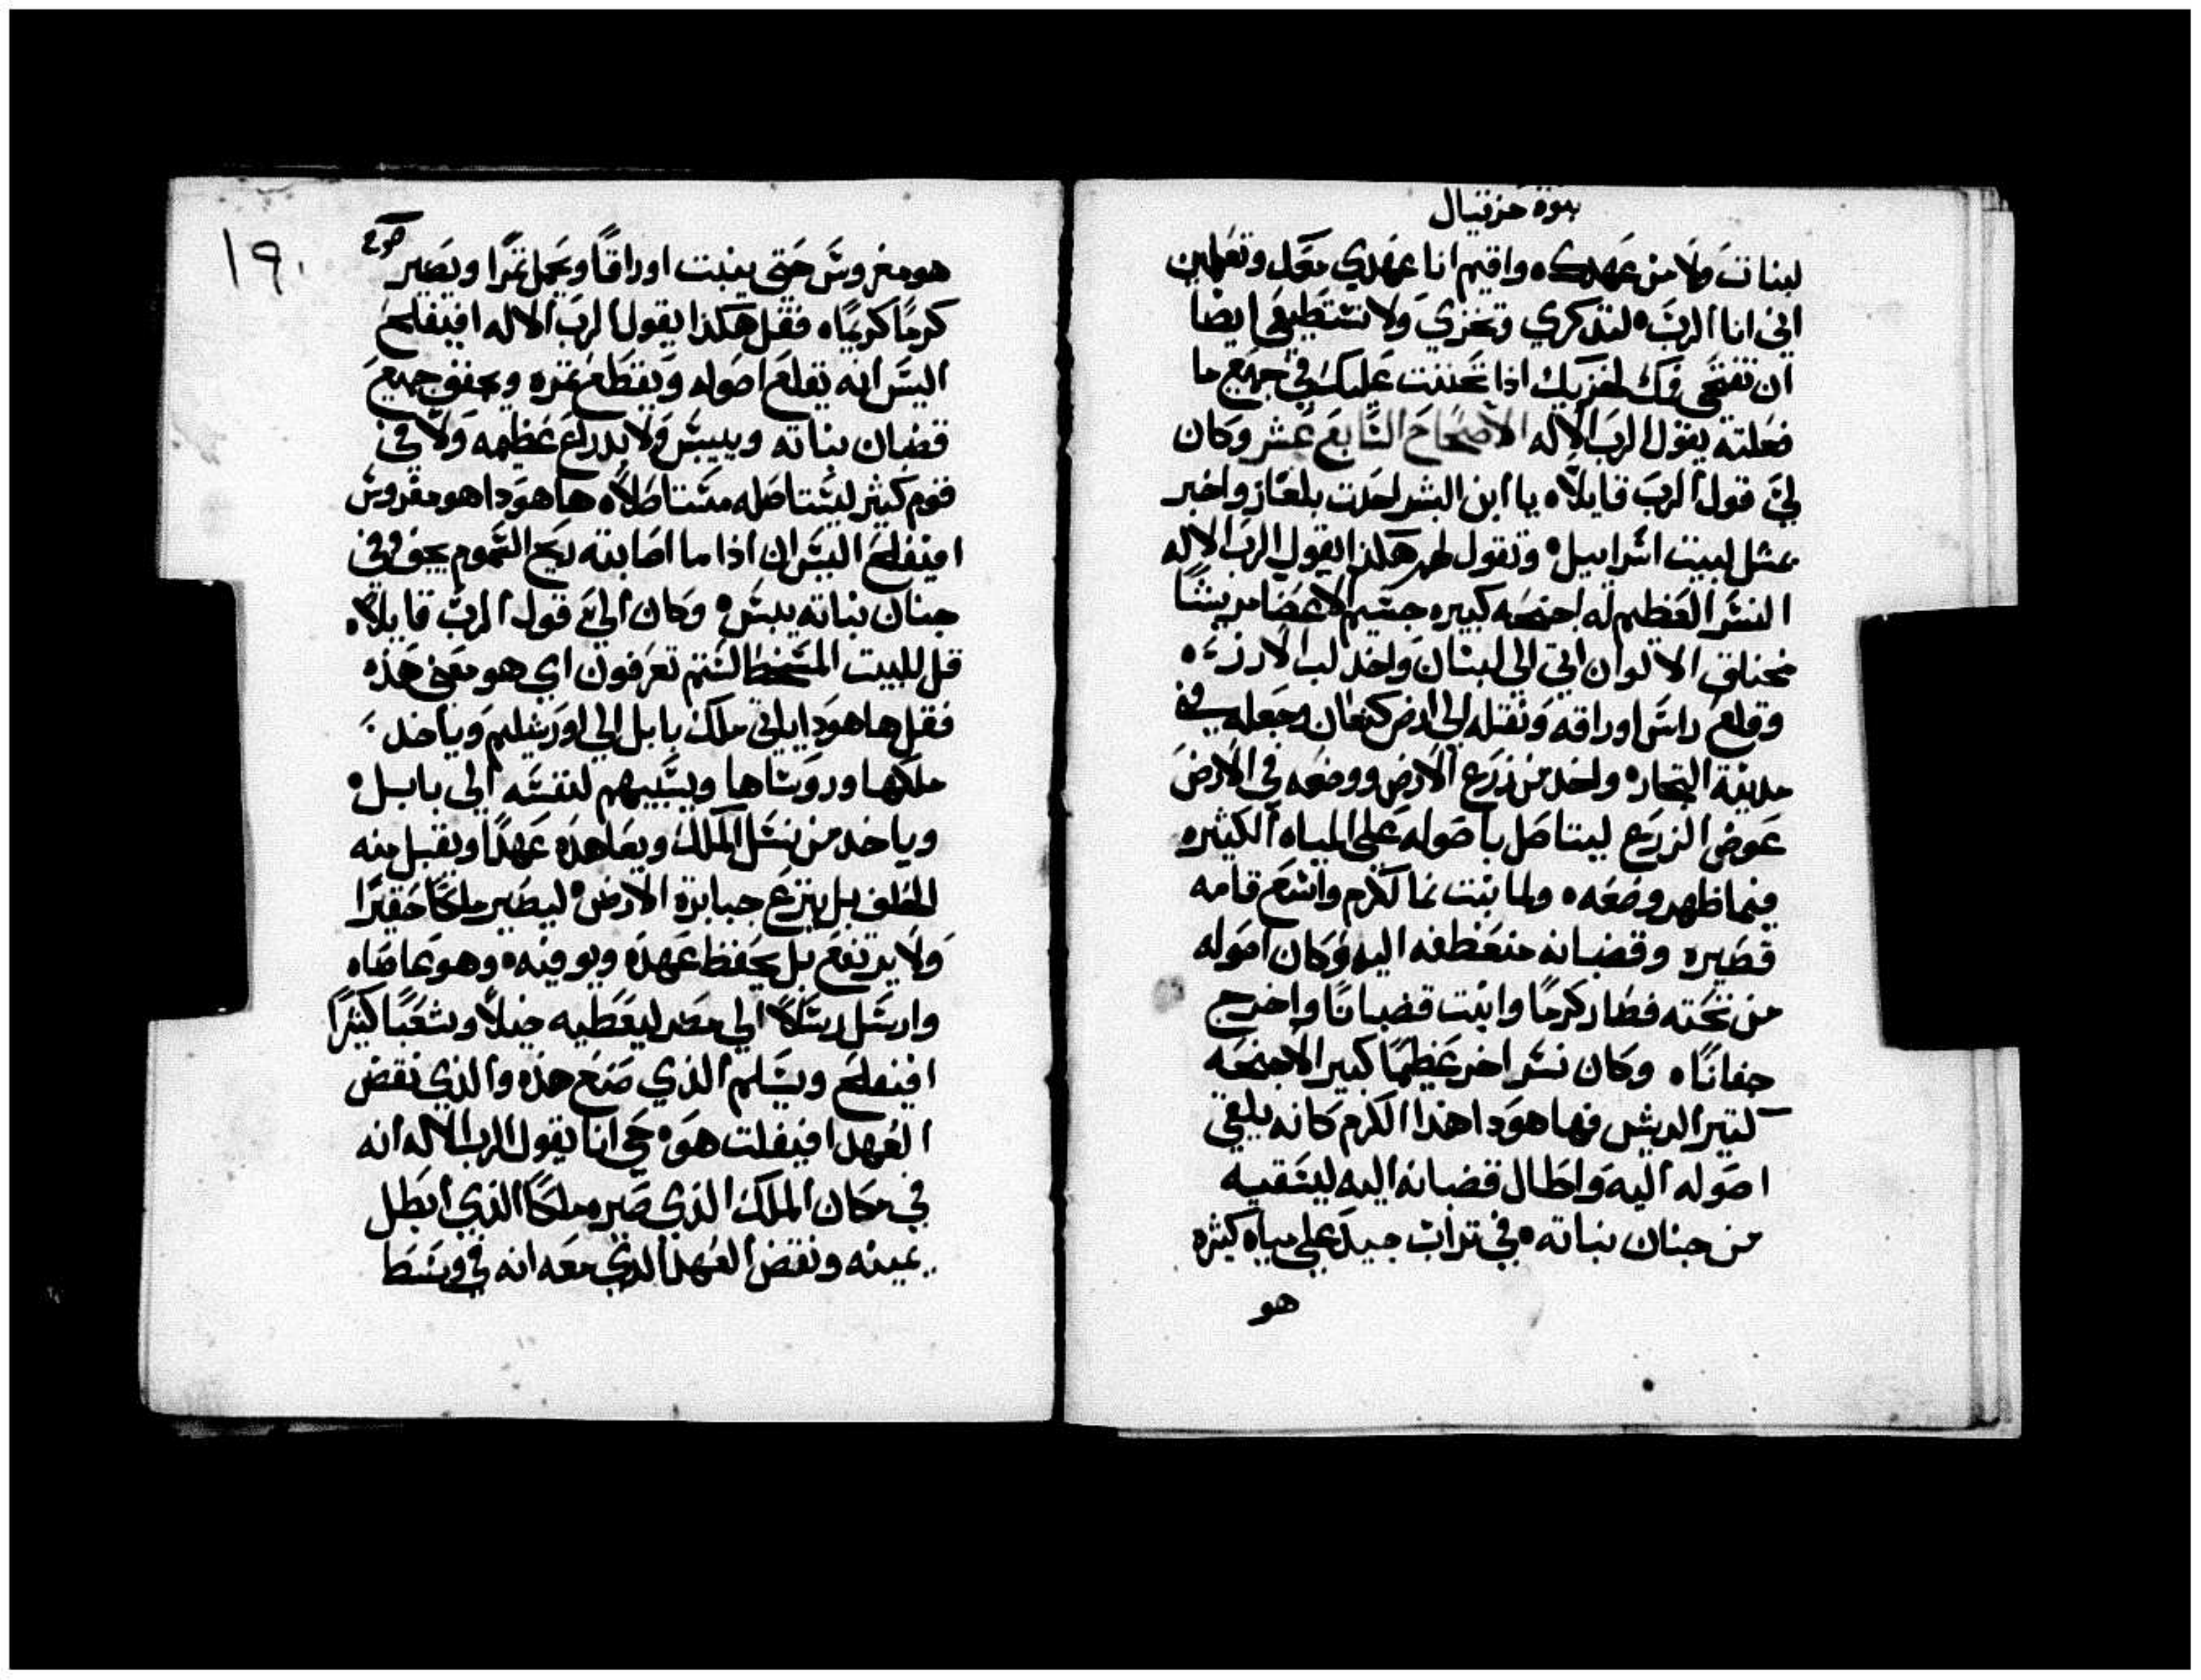 نبوة حزقيال
لبنات ولا من عهدك ه واقيم انا عهدي معك وتعلمين
اني انا الرب ه لتدكري وتخزي ولا تستطيعي ايضا
ان تفتحي فمك لخزيك اذا تحننت عليك في جميع ما
فعلته يقول الرب الاله الاصحاح السابع عشر وكان
لي قول الرب قايلا ه يا ابن البشر احدت بلغاز واخبر
بمثل لبيت اسراييل ه وتقول لهم هكذا يقول الرب الاله
النسر العظيم له اجنحه كبيره جسيم الاعضا مريشا
مختلف الالوان اتي الي لبنان واخد لب الارزه
وقلع راس اوراقه ونقله الي ارض كنعان وجعله في
مدينة التجاره واخد من زرع الارض ووضعه في الارض
عوض الزرع ليتاصل باصوله علي المياه الكثيره
فيما ظهر وضعه ه ولما نبت نما كرم واتسع قامه
قصيره وقضبانه منعطفه اليه وكان اصوله
من تحته فصار كرما وانبت قضبانا واخرج
جفانا ه وكان نسر اخر عظيما كبير الاجنحه
كتير الريش فها هودا هدا الكرم كانه يلقي
اصوله اليه واطال قضبانه اليه ليسقيه
من جنان نباته ه في تراب جيد علي مياه كثيره
هو
١٩٠
هو مغروس حتي ينبت اوراقا ويحمل ثمرا ويصير
كرما كريما ه فقل هكذا يقول الرب الاله افيفلح
اليس انه يقلع اصوله ويقطع ثمره ويجفف جميع
قضبان نباته وييبس ولا بدراع عظيمه ولا في
قوم كثير ليستاصله مستاصلا ه ها هودا هو مغروس
افيفلح اليس ان اذا ما اصابته ريح السموم يجف وفي
جنان نباته ييبس ه وكان الي قول الرب قايلا ه
قل للبيت المسخط الستم تعرفون اي هو معني هذه
فقل ها هودا ياتي ملك بابل الي اورشليم وياخد
ملكها وروساها ويسبيهم لنفسه الي بابل ه
وياخد من نسل الملك ويعاهده عهدا ويقبل منه
الحلف بل ينزع جبابرة الارض ه ليصير ملكا حقيرا
ولا يرتفع بل يحفظ عهده ويوفيه ه وهو عاصاه
وارسل رسلا الي مصر ليعطيه خيلا وشعبا كثيرا
افيفلح ويسلم الذي صنع هذه والذي نقض
العهد افيفلت هو ه حي انا يقول الرب الاله انه
في مكان الملك الذي صيره ملكا الذي ابطل
يمينه ونقض العهد الذي معه انه في وسط